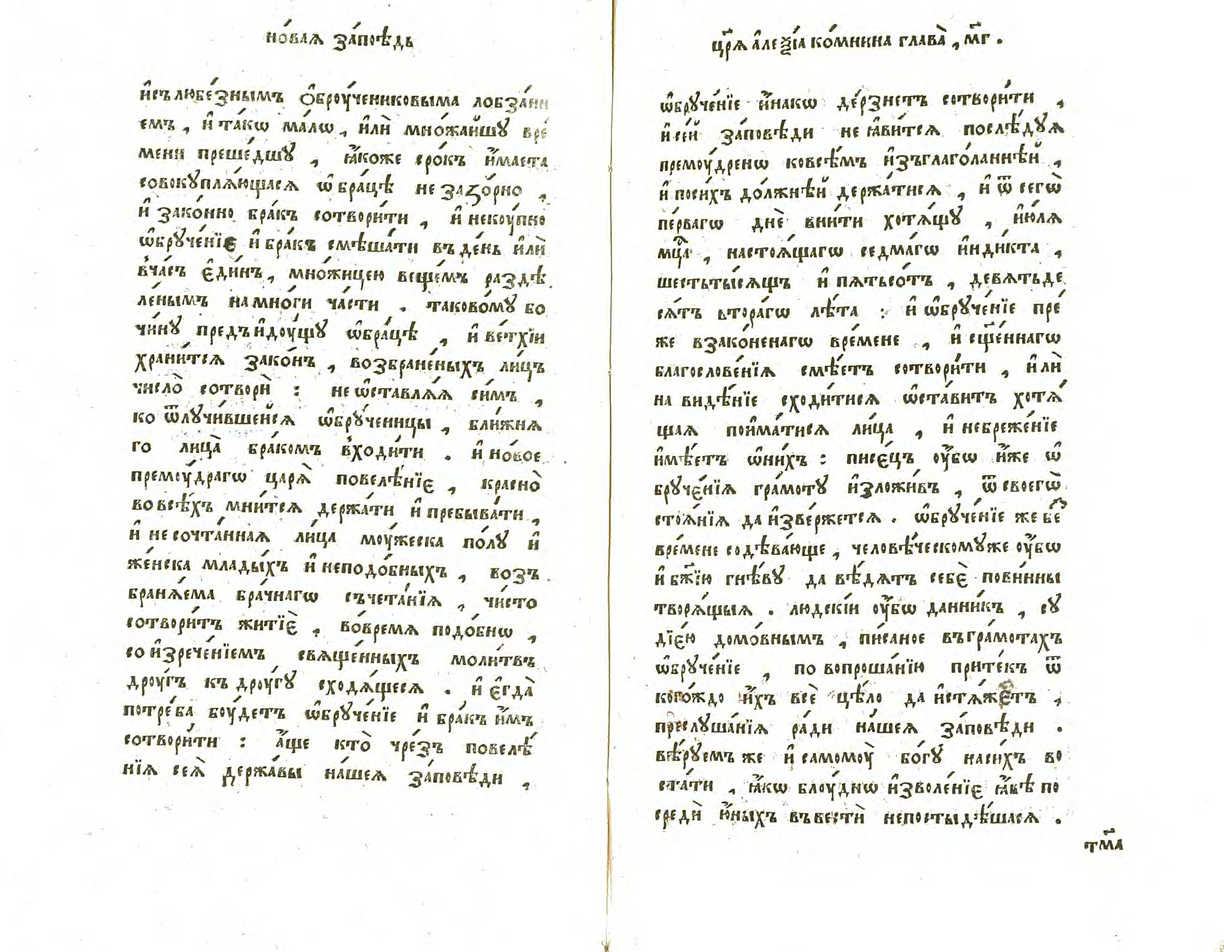 но́ваѧ за́повѣдь
и҆сълюбе́знымъ ѻ҆броу́чениковыма лобза́ни
емъ , и҆та́кѡ ма́лѡ , и҆лѝ мно́жайшꙋ вре́
мени преше́дшꙋ , ꙗ҆́коже сро́къ и҆́маста
совокꙋплѧ́ющасѧ ѡ҆бра́цѣ не заꙁо́рно ,
и҆ зако́нно бра́къ сотвори́ти , и҆ некоу́пно
ѡ҆брꙋче́нїє и҆ бра́къ смѣша́ти въ де́нь и҆лѝ
вча́съ є҆ди́нъ , мно́жицею веще́мъ раздѣ
ле́нымъ на мно́ги ча́сти . таково́мꙋ бо
чи́нꙋ предъи҆доу́щꙋ ѡ҆бра́цѣ , и҆ ве́тхїи
храни́тсѧ зако́нъ , возбране́ныхъ ли́цъ
число̀ сотворѝ : не ѡ҆ставлѧ́ѧ си́мъ ,
ко ѿлучи́вшейсѧ ѡ҆брꙋ́ченицы , бли́жнѧ
го лица̀ бра́комъ вхо́дити . и҆ но́вое
премоу́драгѡ царѧ̀ повелѣ́нїє , кра́сно
вовсѣ́хъ мни́тсѧ держа́ти и҆ пребыва́ти ,
и҆ не сочта́ннаѧ ли́ца моу́жеска по́лꙋ и҆
же́нска млады́хъ и҆ неподо́бныхъ , возъ
бранѧ́ема бра́чнагѡ съчета́нїѧ , чи́сто
сотвори́тъ житїѐ , во́времѧ подо́бнѡ ,
со и҆зрече́нїемъ свѧще́нныхъ моли́твъ
дроу́гъ къ дроу́гꙋ сходѧ́щесѧ . и҆ є҆гда̀
потре́ба боу́детъ ѡ҆брꙋче́нїе и҆ бра́къ и҆̀мъ
сотвори́ти : а҆́ще кто̀ чре́зъ повелѣ́
нїѧ сеѧ̀ держа́вы на́шеѧ за́повѣди ,
цр҃ѧ а҆леѯі́а ко́мнина глава̀ , м҃г .
ѡ҆брꙋче́нїе и҆́накѡ де́рзнетъ сотвори́ти ,
и҆ се́й за́повѣди не ꙗ҆ви́тсѧ послѣ́дꙋѧ
премоу́дренѡ ковсѣ́мъ и҆зъглаго́ланнѣй ,
и҆ поси́хъ до́лжнѣй держа́тисѧ , и҆ ѿ сегѡ̀
пе́рвагѡ днѐ вни́ти хотѧ́щꙋ , и҆ю́лѧ
мц҃а , настоѧ́щагѡ седма́гѡ и҆нди́кта ,
шестьты́сѧщъ и҆ пѧтьсо́тъ , девѧтьде
сѧ́тъ втора́гѡ лѣ́та : и҆ ѡ҆брꙋче́нїе пре́
же взако́ненагѡ вре́мене , и҆ сщ҃е́ннагѡ
благослове́нїѧ смѣ́етъ сотвори́ти , и҆лѝ
на видѣ́нїе сходи́тисѧ ѡ҆ста́витъ хотѧ́
щаѧ пойма́тисѧ ли́ца , и҆ небреже́нїе
и҆мѣ́етъ ѡ҆ни́хъ : писе́цъ оу҆́бѡ и҆́же ѡ҆
брꙋче́нїѧ гра́мотꙋ и҆зложи́въ , ѿ своегѡ̀
стоѧ́нїѧ да и҆зве́ржетсѧ . ѡ҆брꙋче́нїе же бе
вре́мене содѣва́юще , человѣ́ческомꙋже оу҆́бѡ
и҆ бж҃їю гнѣ́вꙋ да вѣ́дѧтъ себѐ пови́нны
творѧ́щыѧ . людскі́и оу҆́бѡ да́нникъ , сꙋ
дїє́ю домо́внымъ , пи́саное въ гра́мотахъ
ѡ҆брꙋче́нїе , по вопроша́нїю прите́къ ѿ
кого́ждо и҆́хъ всѐ цѣ́ло да и҆стѧ́жетъ ,
преслꙋша́нїѧ ра́ди на́шеѧ за́повѣди .
вѣ́рꙋемъ же и҆ самомоу̀ бо́гꙋ наси́хъ во
ста́ти , ꙗ҆́кѡ блоу́днѡ и҆зволе́нїє ꙗ҆́вѣ по
средѝ ю҆́ныхъ въвестѝ непостыдѣ́шасѧ .
тм҃а